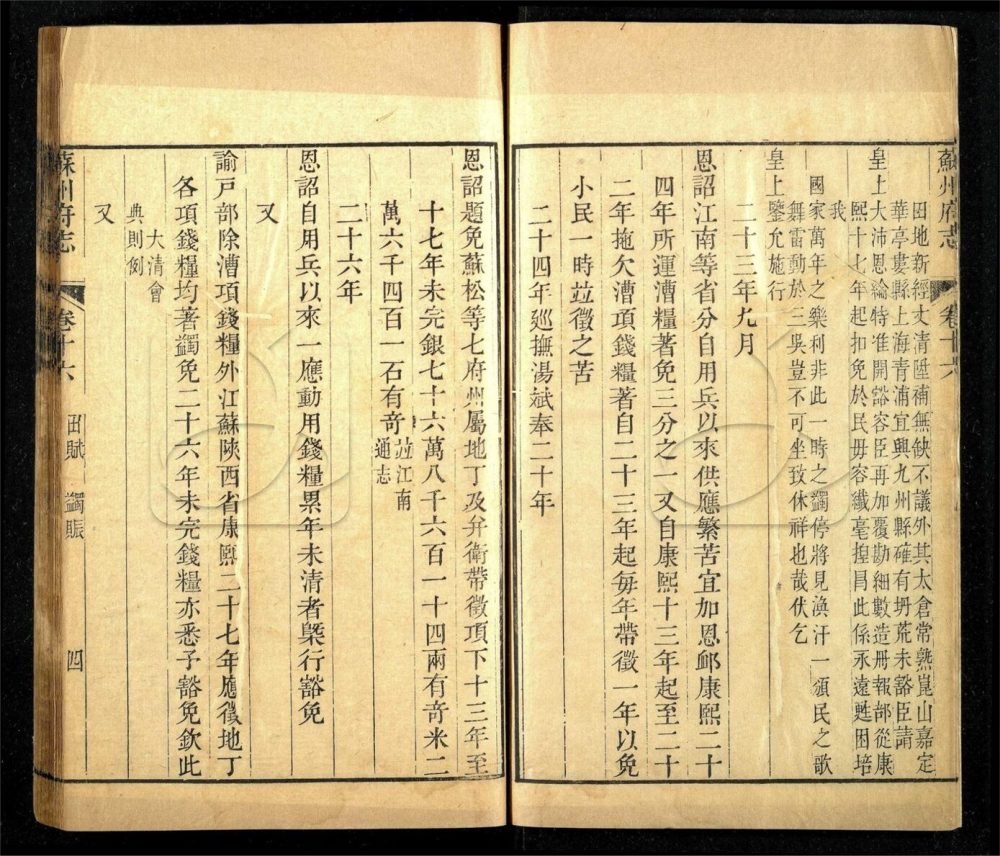 蘇州府志 卷十六
田地新經丈清陞補無缺不議外其太倉常熟崑山嘉定
華亭婁縣上海青浦宜興九州縣確有坍荒未豁臣請
皇上大沛恩綸特准開豁容臣再加覆勘細數造冊報部從康
熙十七年起扣免於民毋容纖毫揑冐此係永遠甦困培
我
國家萬年之樂利非此一時之蠲停將見渙汗一頒民之歌
舞雷動於三吳豈不可坐致休祥也哉伏乞
皇上鑒允施行
二十三年九月
恩詔江南等省分自用兵以來供應繁苦宜加恩䘏康熙二十
四年所運漕糧著免三分之一又自康熙十三年起至二十
二年拖欠漕項錢糧著自二十三年起每年帶徵一年以免
小民一時並徵之苦
二十四年巡撫湯斌奉二十年
恩詔題免蘇松等七府州屬地丁及弁衛帶徵項下十三年至
十七年未完銀七十六萬八千六百一十四兩有奇米二
萬六千四百一石有奇 並江南
通志
二十六年
恩詔自用兵以來一應動用錢糧累年未清者槩行豁免
又
諭戶部除漕項錢糧外江蘇陝西省康熙二十七年應徵地丁
各項錢糧均著蠲免二十六年未完錢糧亦悉予豁免欽此
大清會
典則例
又
蘇州府志 卷十六 田賦 蠲賑 四